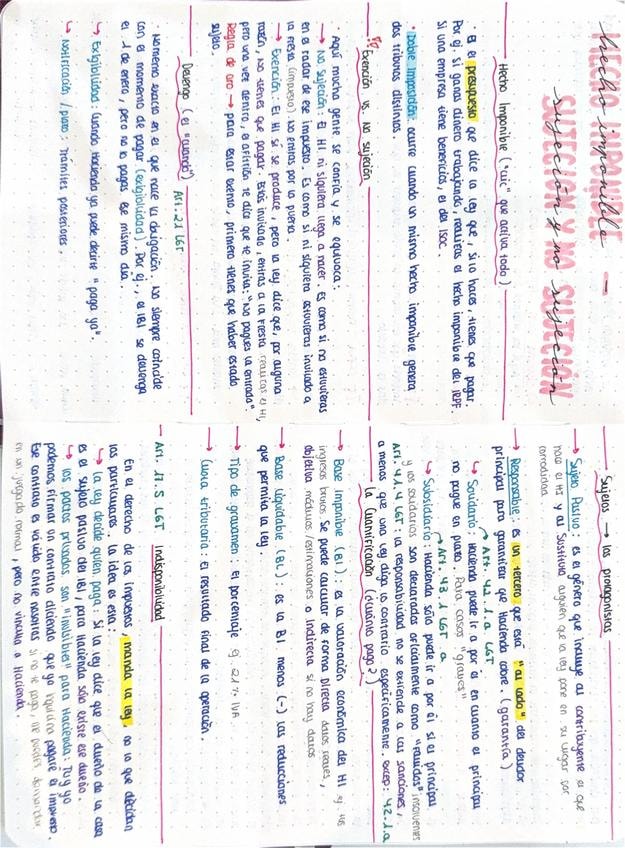 HECHO IMPONIBLE —
hecho imponible
SUJECIÓN Y NO SUJECIÓN
sujeción y no sujeción
Hecho Imponible ("clic" que activa todo)
· Es el presupuesto que dice la ley que, si lo haces, tienes que pagar.
Por ej. si ganas dinero trabajando, realizas el hecho imponible del IRPF.
Si una empresa tiene beneficios, el del ISOC.
· Doble Imposición: ocurre cuando un mismo hecho imponible genera
dos tributos distintos.
Exención vs. No sujeción
· Aquí mucha gente se confía y se equivoca:
→ No Sujeción: El HI ni siquiera llega a nacer. Es como si no estuvieras
en el radar de ese impuesto. Es como si ni siquiera estuvieras invitado a
la fiesta (impuesto). No entras por la puerta.
→ Exención: El HI sí se produce, pero la ley dice que, por alguna
razón, no tienes que pagar. Estás invitado, entras a la fiesta realizas el HI,
pero una vez dentro, el anfitrión te dice que te invita: "No pagues la entrada".
Regla de oro → para estar exento, primero tienes que haber estado
sujeto.
Devengo (el "cuándo") Art. 21 LGT
· Momento exacto en el que nace la obligación. No siempre coincide
con el momento de pagar (exigibilidad). Por ej., el IBI se devenga
el 1 de enero, pero no lo pagas ese mismo día.
→ Exigibilidad: Cuándo Hacienda ya puede decirte "paga ya".
→ Notificación / plazo: Trámites posteriores.
Sujetos → los protagonistas
→ Sujeto Pasivo: Es el género que incluye al contribuyente el que
hace el HI y al Sustituto alguien que la ley pone en su lugar por
comodidad
→ Responsable: es un tercero que está "al lado" del deudor
principal para garantizar que Hacienda cobre. (garantía)
Art. 42.1.a LGT
↳ Solidario: Hacienda puede ir a por él en cuanto el principal
no pague en plazo. Para casos "graves"
Art. 43.1 LGT a
↳ Subsidiario: Hacienda sólo puede ir a por él si el principal
y los solidarios son declarados oficialmente como "fallidos" insolventes
Art. 41.4 LGT: la responsabilidad no se extiende a las sanciones,
a menos que una ley diga lo contrario específicamente. excep: 42.1.a
la Cuantificación (¿cuánto pago?)
→ Base Imponible (BI): es la valoración económica del HI ej tus
ingresos brutos Se puede calcular de forma Directa datos reales,
objetiva módulos / estimaciones o Indirecta si no hay datos
→ Base Liquidable (BL): es la BI menos (-) las reducciones
que permita la ley.
→ Tipo de gravamen: El porcentaje ej 21% IVA
→ Cuota tributaria: el resultado final de la operación.
— Art. 17.5 LGT Indisponibilidad
En el derecho de los impuestos, manda la ley, no lo que decidan
los particulares. La idea es esta:
↳ La ley decide quién paga: Si la ley dice que el dueño de la casa
es el sujeto pasivo del IBI, para Hacienda sólo existe ese dueño.
↳ los pactos privados son "invisibles" para Hacienda: Tú y yo
podemos firmar un contrato diciendo que yo inquilino pagaré el impuesto.
Ese contrato es válido entre nosotros si no te pago, me puedes demandar
en un juzgado normal, pero no vincula a Hacienda.